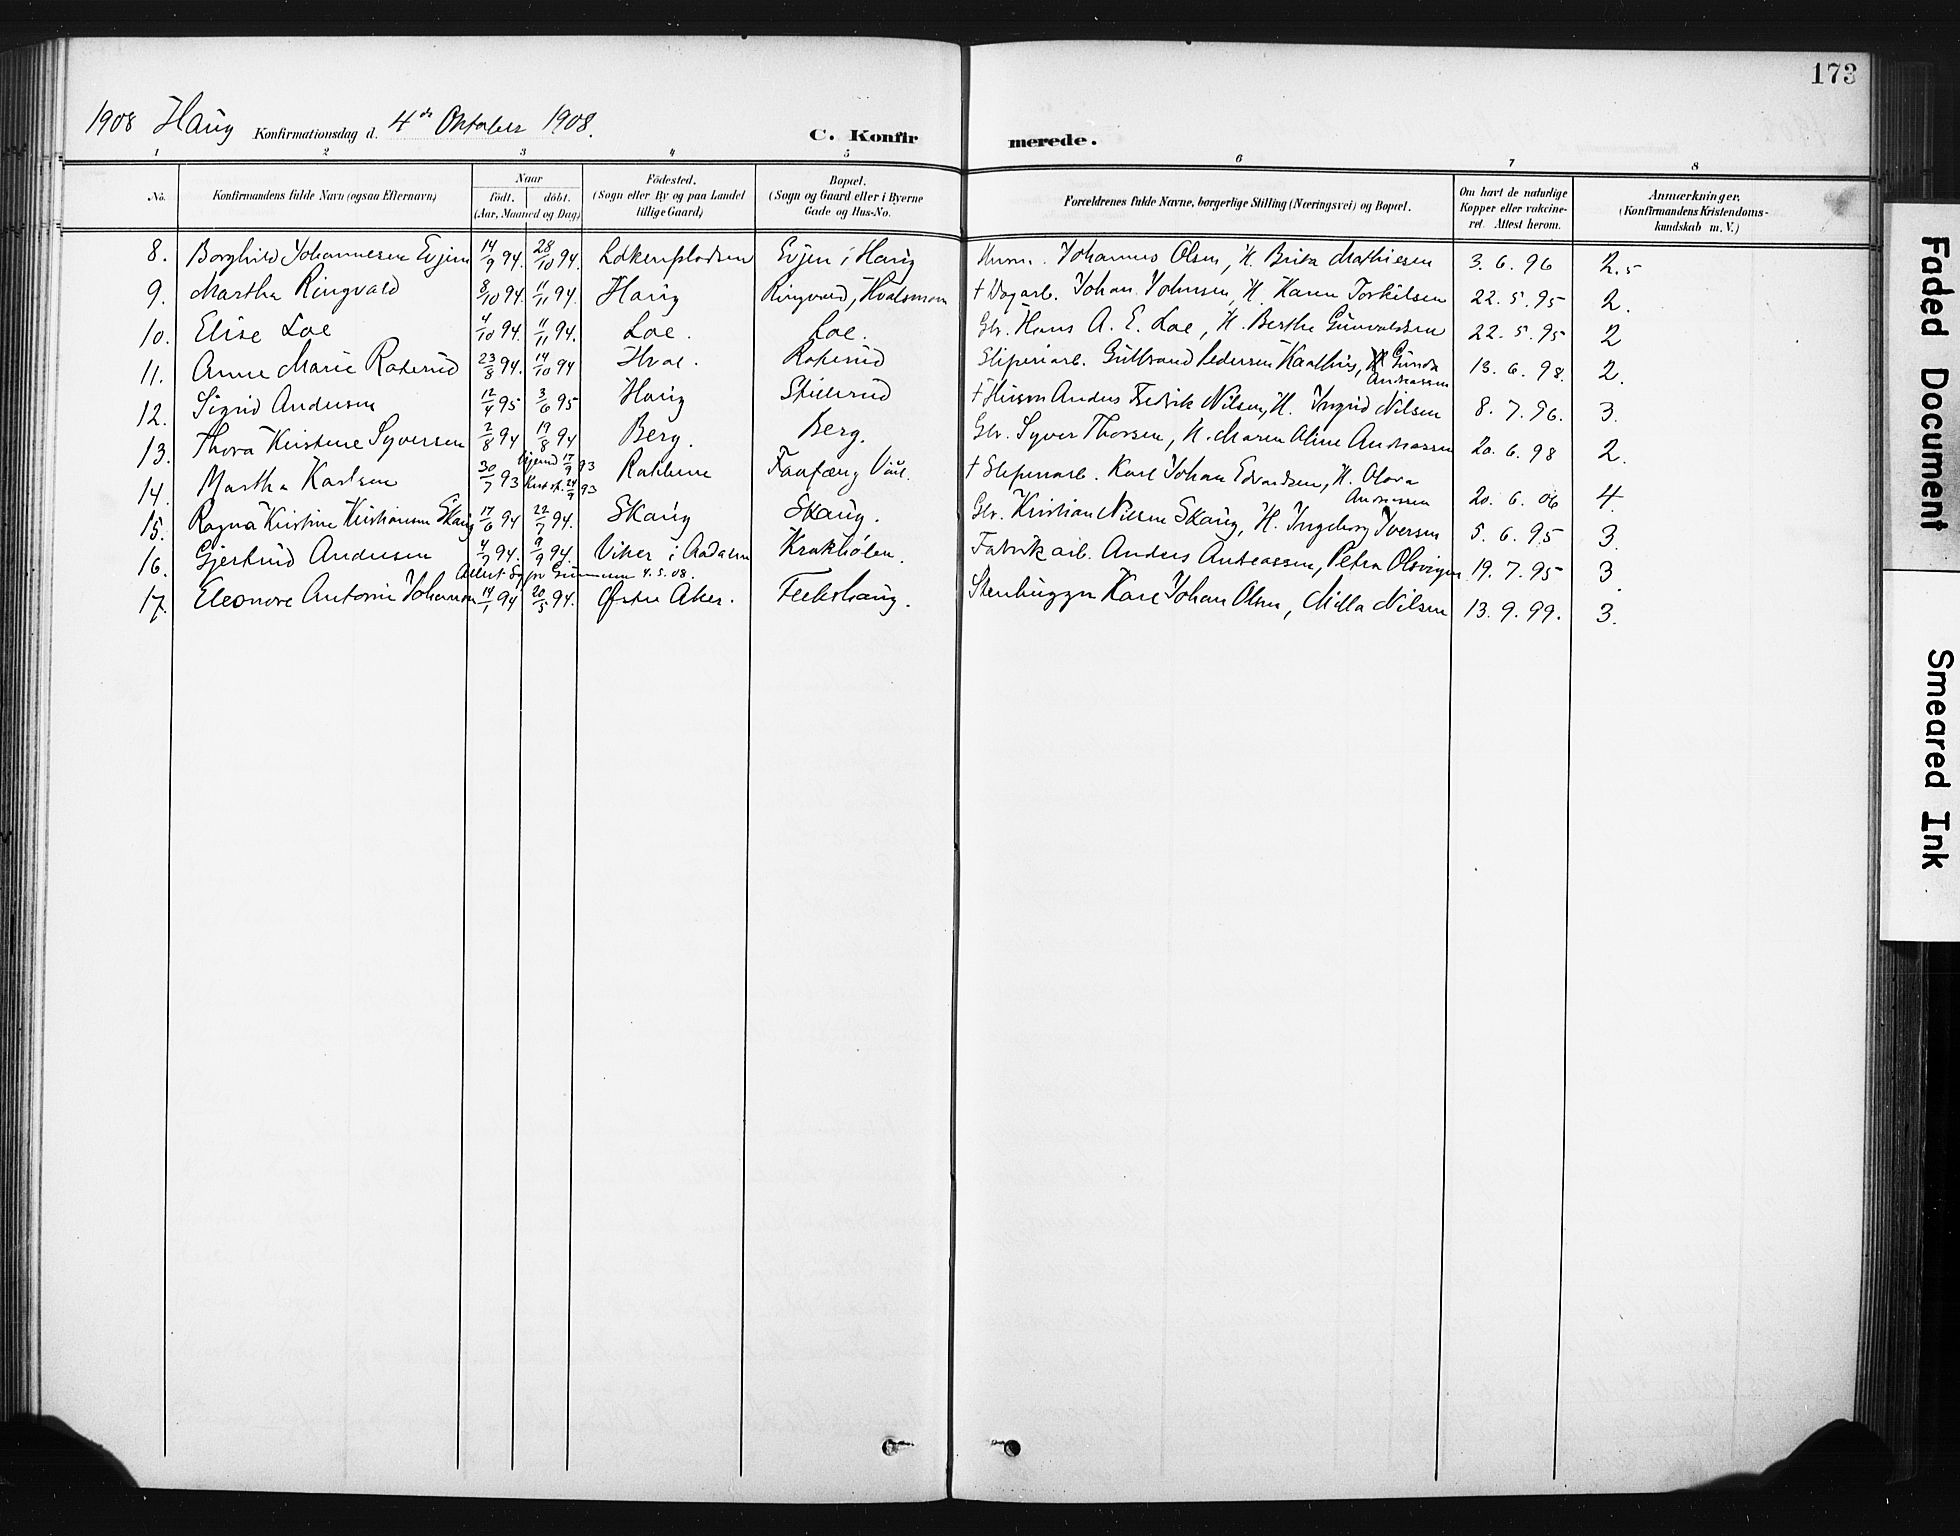 173
1908 Haug Konfirmationsdag d. 4de Oktober 1908. C. Konfirmerede.
1 2 3 4 5 6 7 8
No. Konfirmandens fulde Navn (ogsaa Efternavn) Naar født. døbt. (Aar, Maaned og Dag) Fødested. (Sogn eller By og paa Landet tillige Gaard) Bopæl. (Sogn og Gaard eller i Byerne Gade og Hus-No. Forældrenes fulde Navne, borgerlige Stilling (Næringsvei) og Bopæl. Om havt de naturlige Kopper eller vakcineret. Attest herom. Anmærkninger. (Konfirmandens Kristendomskundskab m. V.)
8. Borghild Johannesen Evjen 14/9 94. 28/10 94. Løkenpladsen Evjen i Haug Johannes Olsen, H. Brita Mathiesen 3. 6. 96 2.5
9. Martha Ringvald 8/10 94. 11/11 94. Haug Ringvald, Hvalsmoen † Dagarb. Johan Johnsen, H. Karen Torkilsen 22. 5. 95 2.
10. Elise Loe 4/10 94. 11/11 94. Loe. Loe. Gbr. Hans A. E. Loe, H. Berthe Gunvaldsen 22. 5. 95 2
11. Anne Marie Roterud 23/8 94. 14/10 94 Hval. Roterud Sliperiarb. Gulbrand Pedersen H. Gunda Andreassen 13. 6. 98. 2.
12. Sigrid Andersen 12/4 95 3/6 95 Haug † Husm Anders Fredrik Nilsen, H. Ingrid Nilsen 8. 7. 96. 3.
13. Thora Kristine Syversen 2/8 94 19/8 94 Berg. Berg. Gbr. Syver Thorsen, H. Maren Aline Andreassen 20. 6. 98 2.
14. Martha Karlsen 30/7 93 Hjemd 17/9 93 24/9 93 † Sliperiarb. Karl Johan Edvardsen, H. Olava Andreassen 20. 6. 06 4.
15. Ragna Kristine Kristiansen Skaug 17/6 94 22/7 94. Skaug Skaug. Gbr. Kristian Nilsen Skaug, H. Ingeborg Iversen 5. 6. 95 3.
16. Gjertrud Andersen 4/7 94. 9/9 94. Viker i Aadalen Fabrikarb. Anders Andreassen, Petra 19. 7. 95 3.
4. 5. 08.
17. Eleonore Antonie Johansen 14/1 94 20/5 94. Østre Aker. Stenhugger Karl Johan Olsen, Milla Nilsen 13. 9. 99. 3.
Faded Document
Smeared Ink